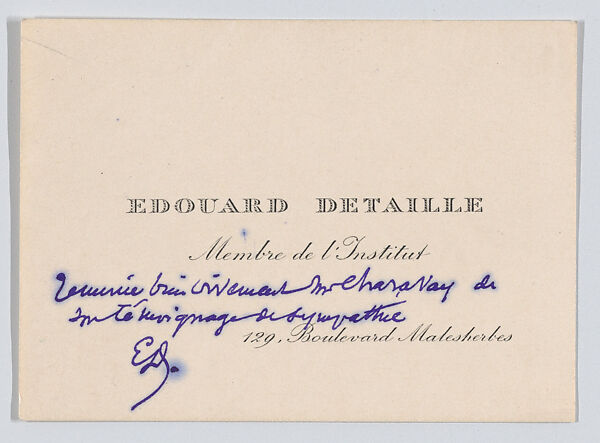 EDOUARD DETAILLE
Membre de l'Institut
remercie bien vivement Mr Charavay de
son témoignage de sympathie
129, Boulevard Malesherbes
ED.